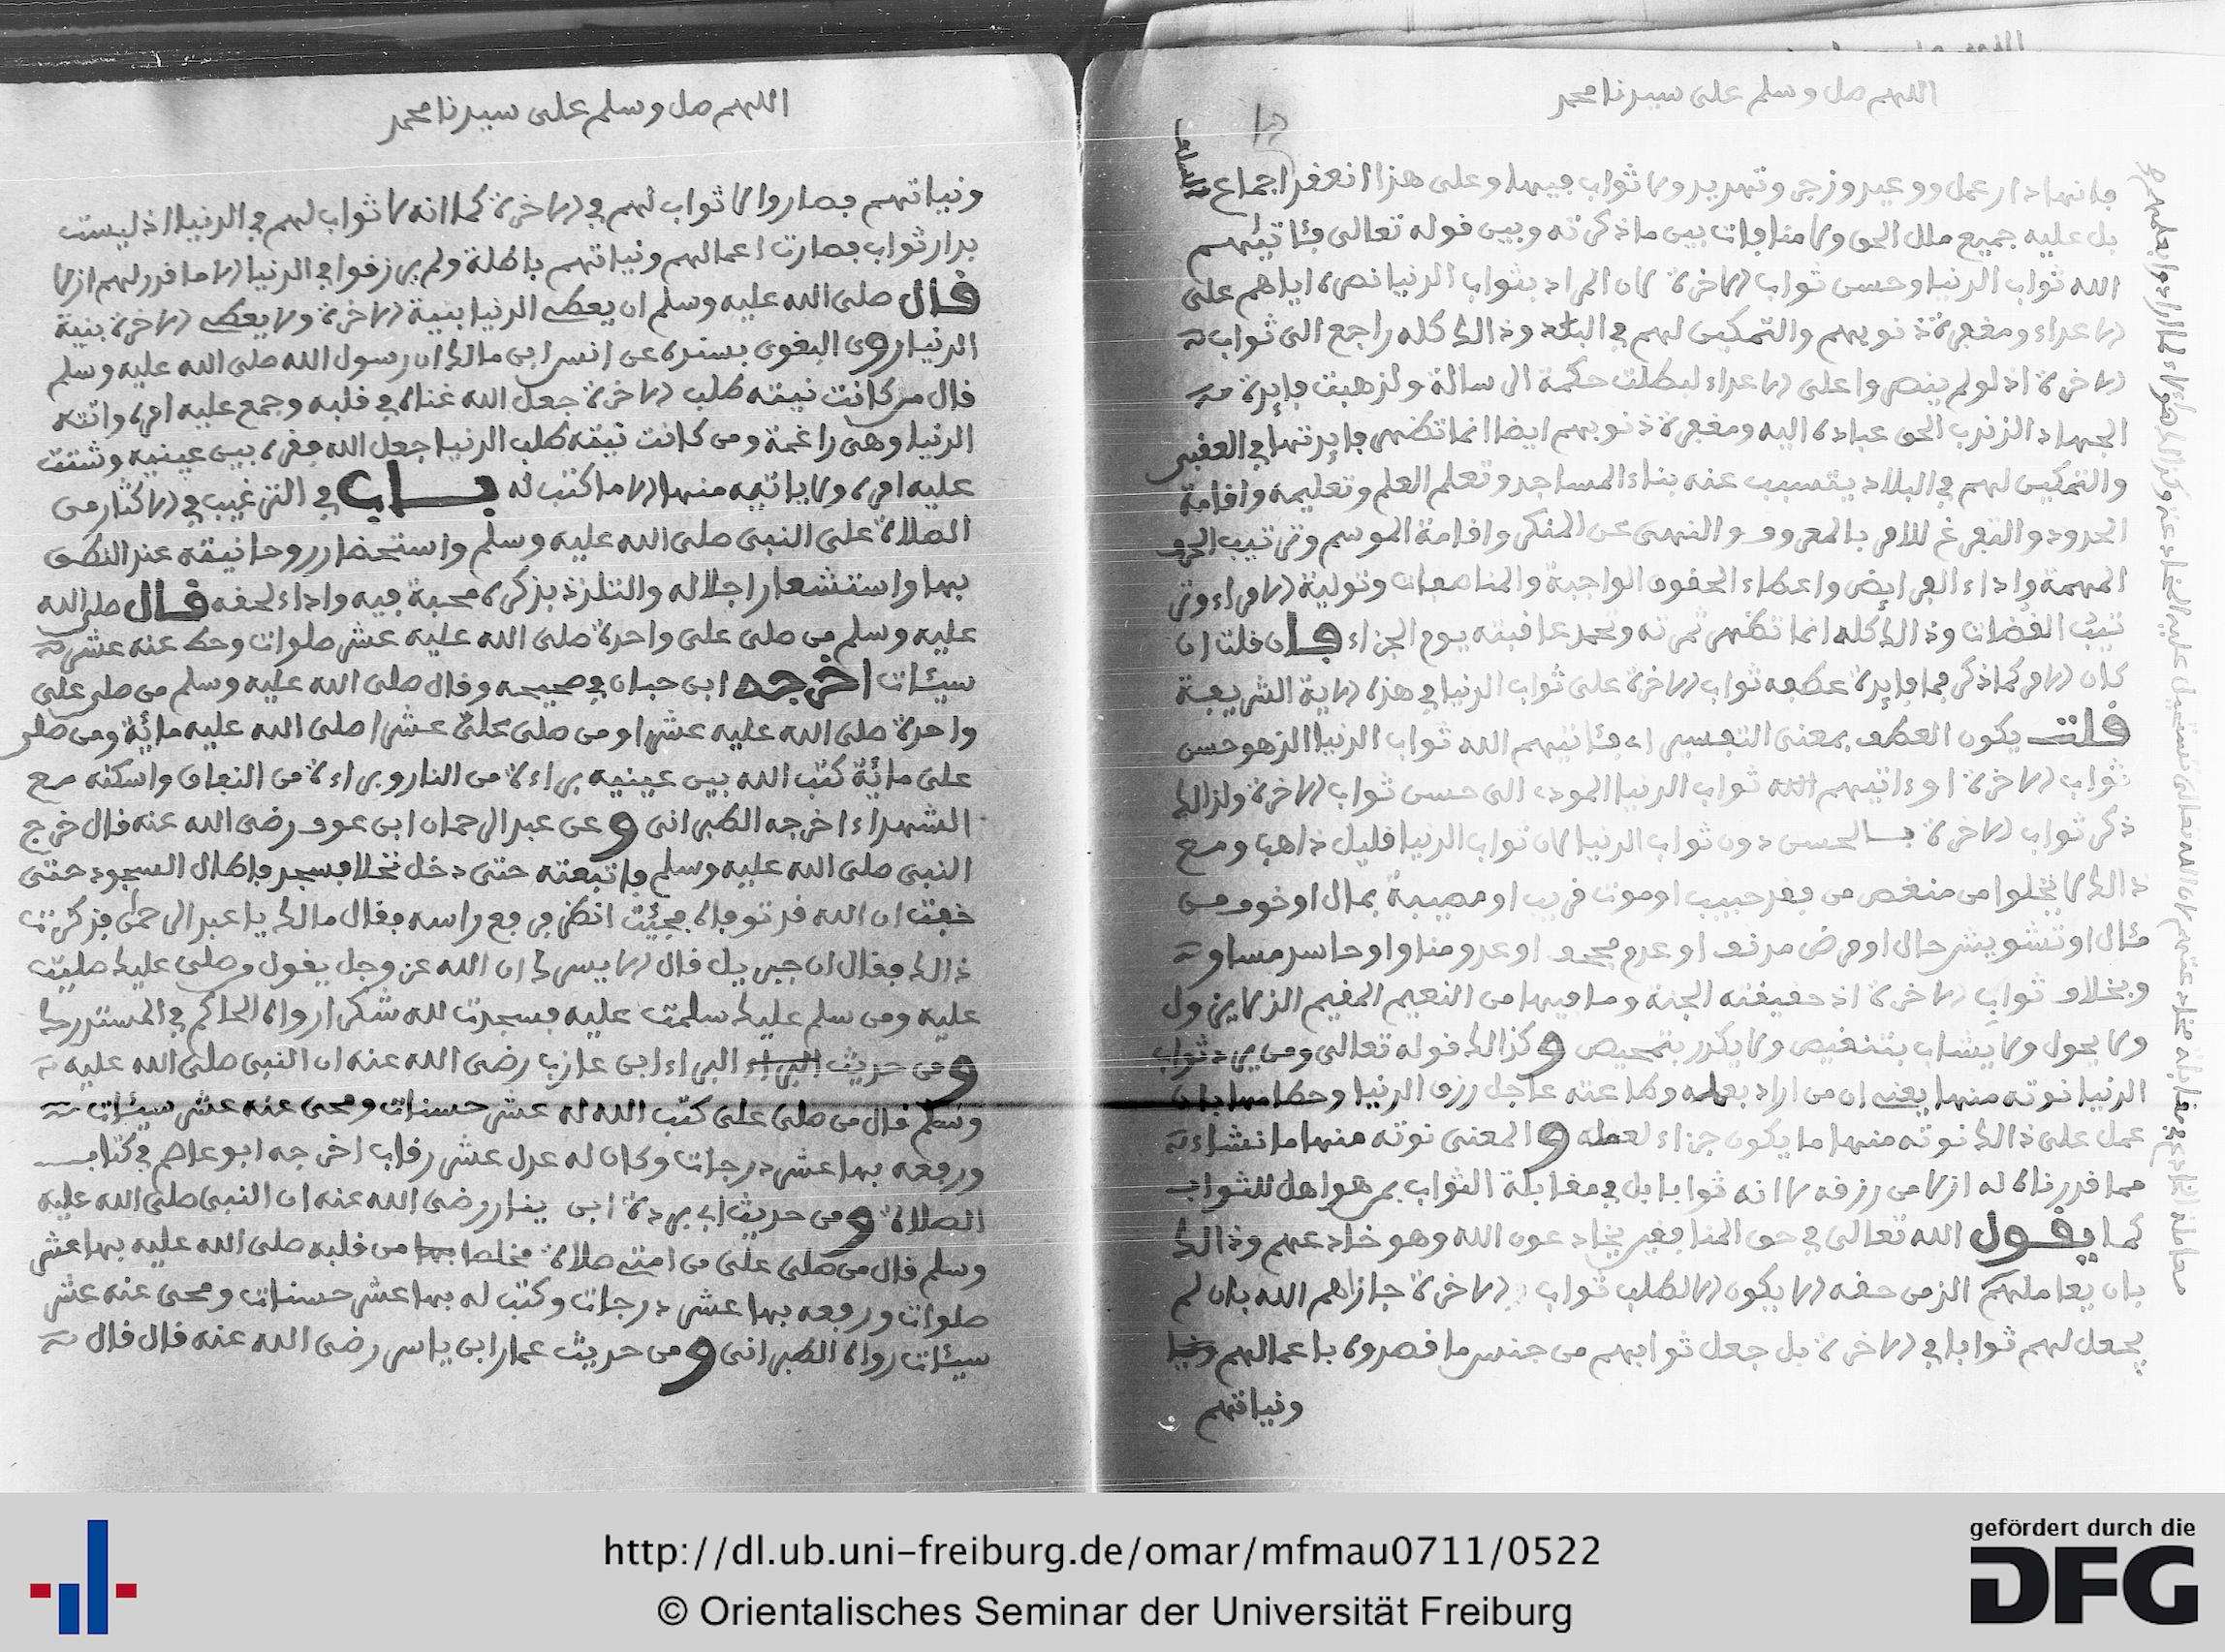 اللهم صل وسلم على سيدنا محمد
فانها دار عمل ووعيد وزجر وتهديد ولا ثواب فيها وعلى هذا انعقد اجماع
بل عليه جميع ملل الحق ولا منافات بين ما ذكرته وبين قوله تعالى فئاتيهم
الله ثواب الدنيا وحسن ثواب الاخرة لان المراد بثواب الدنيا نصره اياهم على
الاعداء ومغفرة ذنوبهم والتمكين لهم في البلاد وذالك كله راجع الى ثواب
الاخرة اذ لو لم ينصروا على الاعداء لبطلت حكمة الرسالة ولذهبت فايدة
الجهاد الذى به الحق عباده اليه ومغفرة ذنوبهم ايضا انما تظهر فايدتها في العقبى
والتمكين لهم في البلاد يتسبب عنه بناء المساجد وتعلم العلم وتعليمه واقامة
الحدود والتفرغ للامر بالمعروف والنهى عن المنكر واقامة الموسم وترتيب الحرف
المهمة واداء الفرايض واعطاء الحقوق الواجبة والمناصفات وتولية الامراء وتر
تيب القضات وذالك كله انما تظهر ثمرته وتحمد عاقبته يوم الجزاء فان قلت ان
كان الامر كما ذكر فما فايدة عطفه ثواب الاخرة على ثواب الدنيا في هذه الاية الشريفة
قلت يكون العطف بمعنى التفسير اى فئاتيهم الله ثواب الدنيا الذ هو حسن
ثواب الاخرة او ءاتيهم الله ثواب الدنيا المود الى حسن ثواب الاخرة ولذالك
ذكر ثواب الاخرة بالحسن دون ثواب الدنيا لان ثواب الدنيا قليل ذاهب ومع
ذالك لا يخلوا من منغص من فقد حبيب او موت قريب او مصيبة بمال او خوف من
مئال او تشويش حال او مرض مدنف او عدم مجحف او عدو مناوا او حاسد مساو
وبخلاف ثواب الاخرة اذ حقيقته الجنة وما فيها من النعيم المقيم الذ لا يزول
ولا يحول ولا يشاب بتنغيص ولا يكدر بتمحيص وكذالك قوله تعالى ومن يرد ثواب
الدنيا نوته منها يعنى ان من اراد بعمله وطاعته عاجل رزق الدنيا وحطامها بان
عمل على ذالك نوته منها ما يكون جزاء لعمله والمعنى نوته منها ما نشاء
مما قدرناه له ازلا من رزقه لا انه ثوابا بل في مقابلة الثواب بمن هو اهل للثواب
كما يقول الله تعالى في حق المنافقين يخادعون الله وهو خادعهم وذالك
بان يعاملهم الذ من حقه الا يكون الا لطلب ثواب الاخرة جازاهم الله بان لم
يجعل لهم ثوابا في الاخرة بل جعل ثوابهم من جنس ما قصدوه باعمالهم
ونياتهم
اللهم صل وسلم على سيدنا محمد
ونياتهم فصاروا لا ثواب لهم في الاخرة كما انه لا ثواب لهم في الدنيا اذ ليست
بدار ثواب فصارت اعمالهم ونياتهم باطلة ولم يرزقوا في الدنيا الا ما قدر لهم ازلا
قال صلى الله عليه وسلم ان يعطى الدنيا بنية الاخرة ولا يعطى الاخرة بنية
الدنيا روى البغوى بسنده عن انس ابن مالك ان رسول الله صلى الله عليه وسلم
قال من كانت نيته طلب الاخرة جعل الله غناه في قلبه وجمع عليه امره واتته
الدنيا وهى راغمة ومن كانت نيته طلب الدنيا جعل الله فقره بين عينيه وشتت
عليه امره ولا ياتيه منها الا ما كتب له باب في الترغيب في الاكثار من
الصلاة على النبى صلى الله عليه وسلم واستحضار روحانيته عند النطق
بها واستشعار اجلاله والتلذذ بذكره محبة فيه واداء لحقه قال صلى الله
عليه وسلم من صلى على واحدة صلى الله عليه عشر صلوات وحط عنه عشر
سيئات اخرجه ابن حبان في صحيحه وقال صلى الله عليه وسلم من صلى على
واحدة صلى الله عليه عشرا ومن صلى على عشرا صلى الله عليه مائة ومن صلى
على مائة كتب الله بين عينيه براءة من النار وبراءة من النفاق واسكنه مع
الشهداء اخرجه الطبرانى وعن عبد الرحمان ابن عوف رضى الله عنه قال خرج
النبى صلى الله عليه وسلم فاتبعته حتى دخل نخلا فسجد فاطال السجود حتى
خفت ان الله قد توفاه فجئت انظر فرفع راسه فقال مالك يا عبد الرحمن فذكرت
ذالك فقال ان جبريل قال الا يسرك ان الله عز وجل يقول من صلى عليك صليت
عليه ومن سلم عليك سلمت عليه فسجدت لله شكرا رواه الحاكم في المستدرك
ومن حديث البراء البراء ابن عازب رضى الله عنه ان النبى صلى الله عليه
وسلم قال من صلى على كتب الله له عشر حسنات ومحى عنه عشر سيئات
ورفعه بها عشر درجات وكان له عدل عشر رقاب اخرجه ابو عاصم في كتاب
الصلاة ومن حديث ابى بردة ابن ينار رضى الله عنه ان النبى صلى الله عليه
وسلم قال من صلى على من امتى صلاة مخلصا بها من قلبه صلى الله عليه بها عشر
صلوات ورفعه بها عشر درجات وكتب له بها عشر حسنات ومحى عنه عشر
سيئات رواه الطبرانى ومن حديث عمار ابن ياسر رضى الله عنه قال قال
http://dl.ub.uni-freiburg.de/omar/mfmau0711/0522
© Orientalisches Seminar der Universität Freiburg
gefördert durch die
DFG